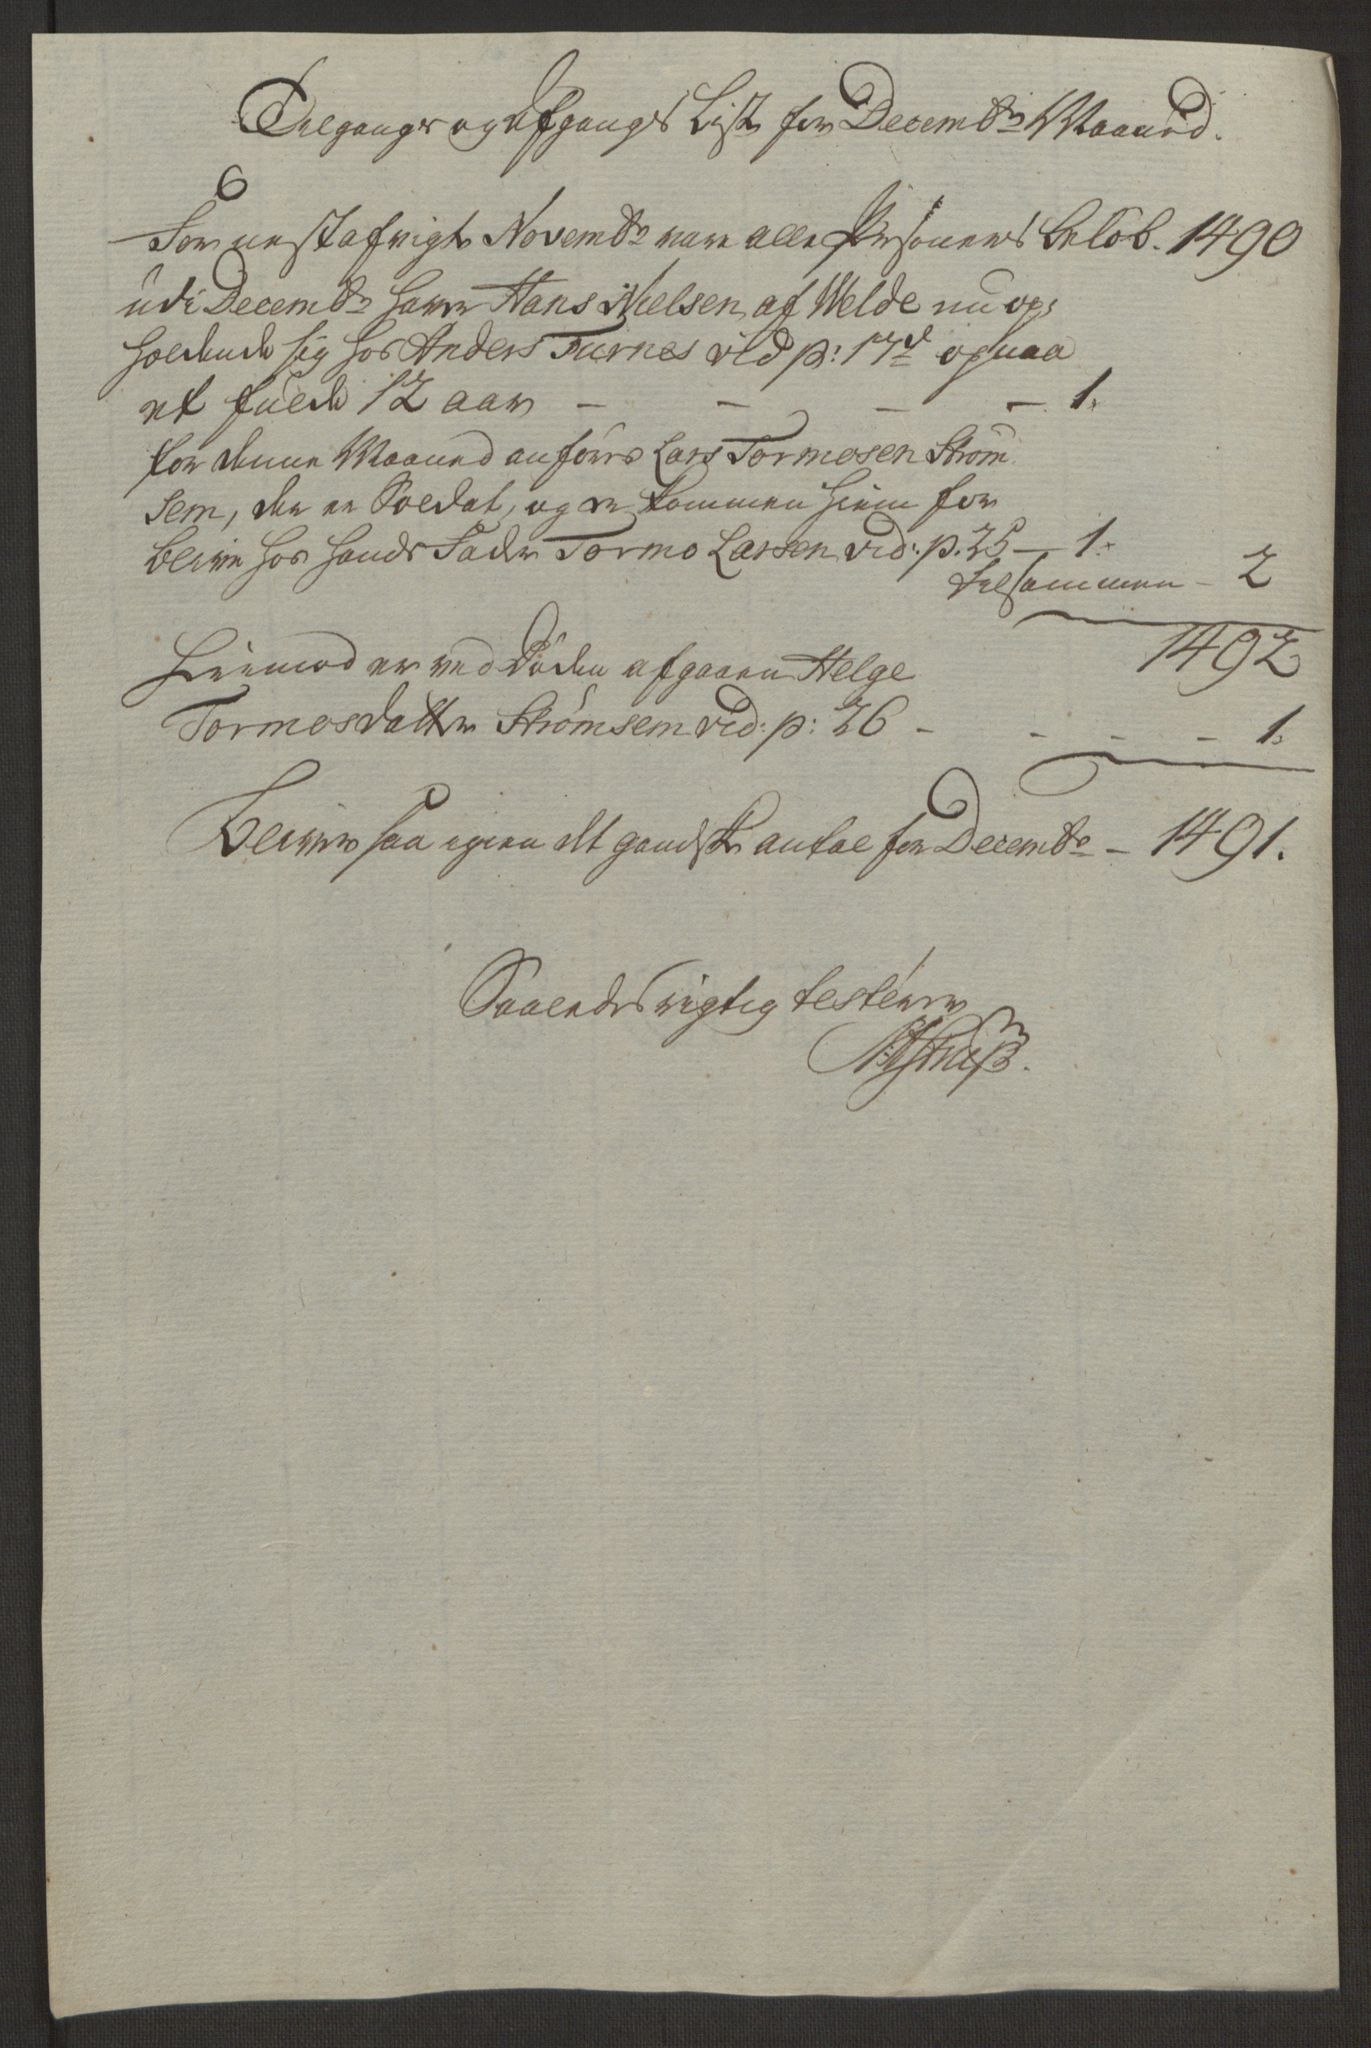 Tilgangs og Afgangs List for Decembr Maaned.
For nest afvigte Novembr vare alle Personers beløb. 1490
udi Decembr haver Hans Nielsen af Welde nu op,
holdende sig hos Anders Furnes vid p: 17de opnaa
et fulde 12 aar - - - - 1.
for denne Maaned anføres Lars Tormosen Strøm
sem, der er Soldat, og er kommen hiem for
blive hos hands Fader Tormo Larsen vid: p. 25 - 1.
tilsammen - 2
1492
Hiemod er ved Døden afgaaen Helge
Tormosdatter Strømsem vid: p: 26 - - - - 1.
Bliver saa igien det gandske antal for Decembr - 1491.
Saaledes rigtig testerer